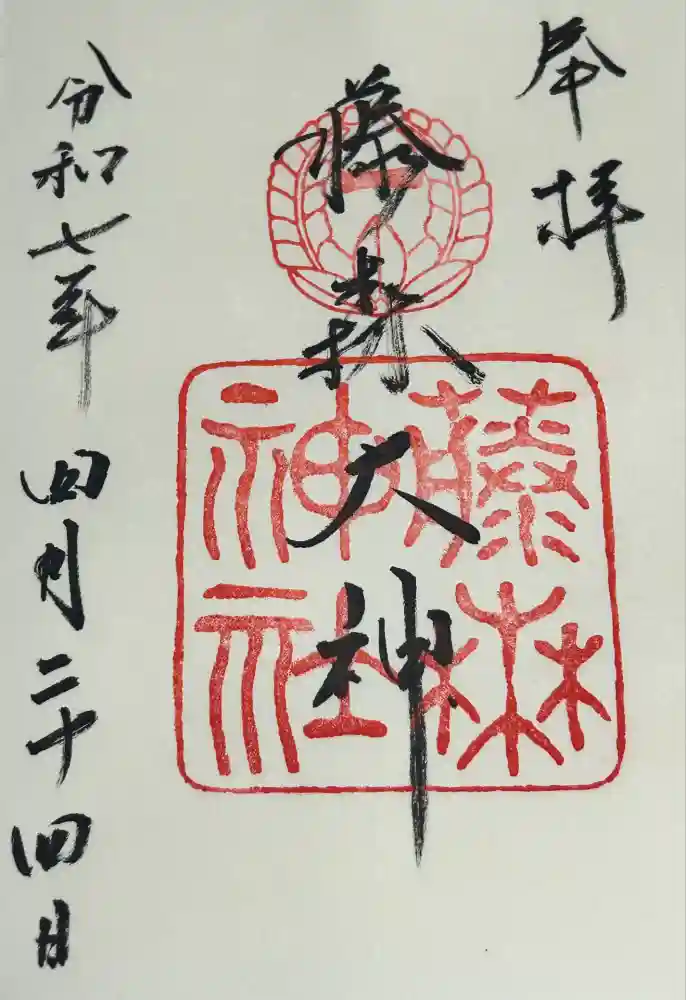 奉拝
藤森大神
藤森
神社
令和七年四月二十四日